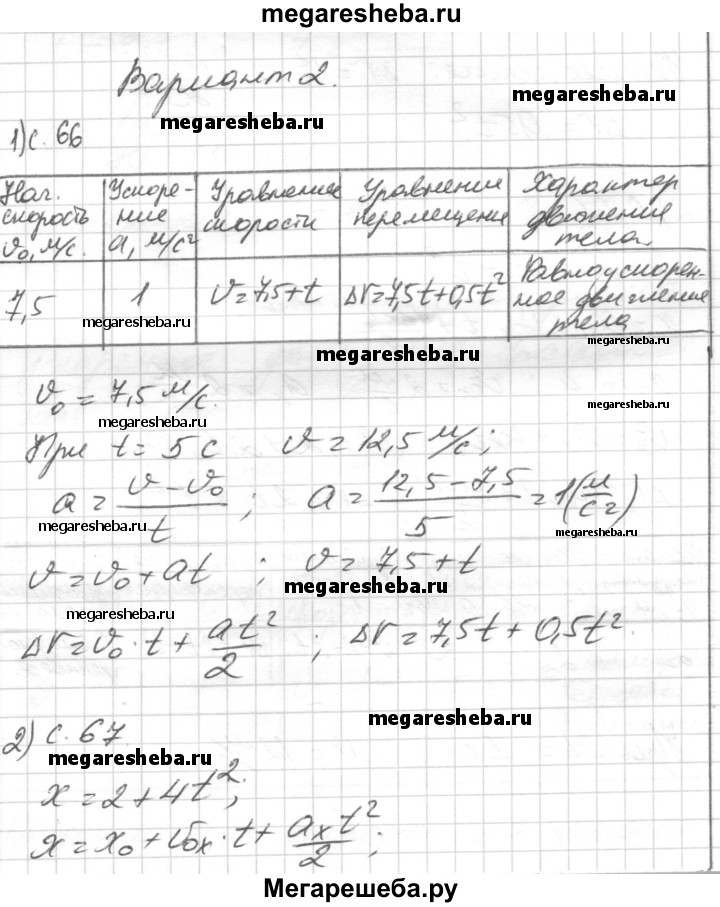 megaresheba.ru
Вариант 2.
megaresheba.ru
megaresheba.ru
1) с. 66
Нач. скорость v₀, м/с.
Ускорение a, м/с²
Уравнение скорости
Уравнение перемещения
Характер движения тела
7,5
1
v=7,5+t
Δr=7,5t+0,5t²
Равноускоренное движение тела
megaresheba.ru
megaresheba.ru
megaresheba.ru
v₀ = 7,5 м/с.
megaresheba.ru
megaresheba.ru
При t = 5 с v = 12,5 м/с;
a = (v - v₀)/t ; a = (12,5 - 7,5)/5 = 1(м/с²)
megaresheba.ru
megaresheba.ru
v = v₀ + at ; v = 7,5 + t
megaresheba.ru
megaresheba.ru
Δr = v₀ · t + at²/2 ; Δr = 7,5t + 0,5t².
megaresheba.ru
2) с. 67
megaresheba.ru
x = 2 + 4t²;
x = x₀ + v₀ₓ · t + aₓt²/2 ;
Мегарешеба.ру